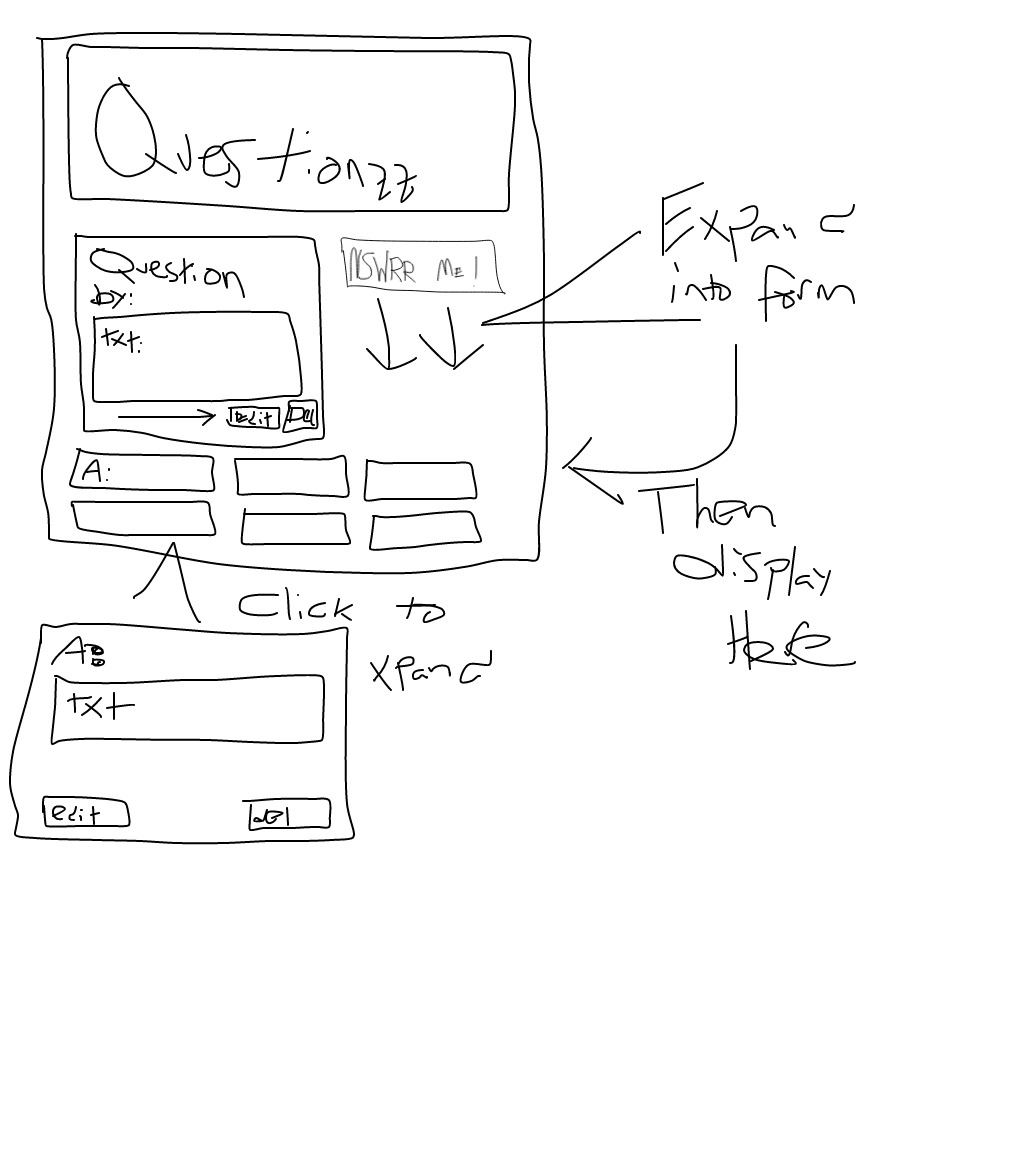 Questionzz
Question
by:
txt:
Edit Del
NSWRR ME!
Expand
into form
Then
display
Here
A:
Click to
xpand
A:
txt
edit del